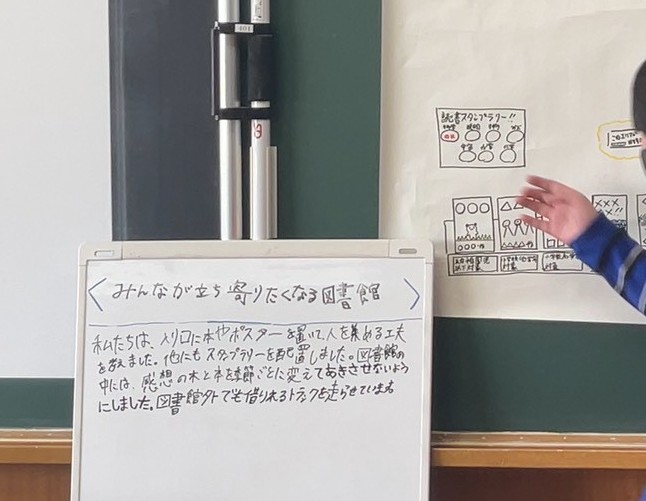 みんなが立ち寄りたくなる図書館
私たちは、入り口に本やポスターを置いて、人を集める工夫
を考えました。他にもスタンプラリーを配置しました。図書館の
中には、感想の木と本を季節ごとに変えてあきさせないよう
にしました。図書館外でも借りれるトラックを走らせています
読書スタンプラリー!!
○○○
△△
×××
××!!
○○○